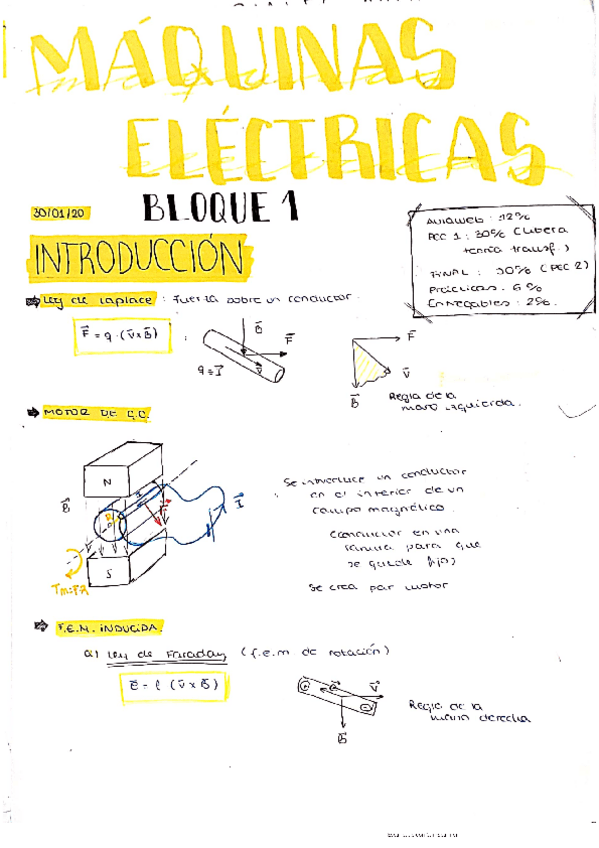 MÁQUINAS
ELÉCTRICAS
BLOQUE 1
30/01/20
INTRODUCCIÓN
Aulaweb : 12%
PEC 1 : 30% (libera
teoría transf.)
FINAL : 50% (PEC 2)
Prácticas : 6%
Entregables : 2%.
Ley de Laplace : Fuerza sobre un conductor.
F⃗ = q · (v⃗ x B⃗)
B⃗
F⃗
v⃗
q ≡ I⃗
F⃗
V⃗
B⃗
Regla de la
mano izquierda.
MOTOR DE C.C.
N
B⃗
I⃗
S
Se introduce un conductor
en el interior de un
campo magnético.
Conductor en una
ranura para que
se quede fijo)
Se crea par motor
F.E.M. INDUCIDA.
a) Ley de Faraday (f.e.m de rotación)
e⃗ = l (v⃗ x B⃗)
e⃗
V⃗
B⃗
Regla de la
mano derecha